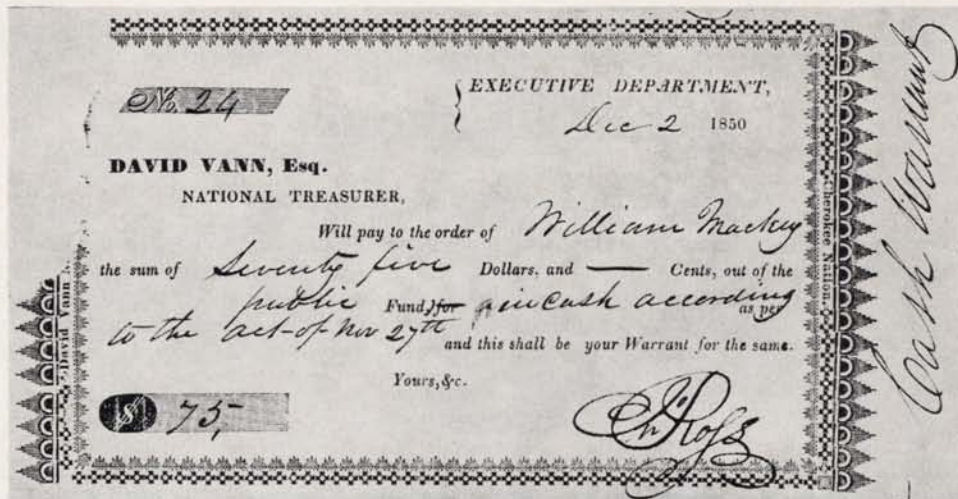 No. 24
EXECUTIVE DEPARTMENT,
Dec 2 1850
DAVID VANN, Esq.
NATIONAL TREASURER,
Will pay to the order of William Mackey
the sum of Seventy five Dollars, and — Cents, out of the
public Fund, for in Cash according as per
to the act of Nov 27th and this shall be your Warrant for the same.
Yours, &c.
$ 75,
Jno Ross
David Vann
Cherokee Nation.
Cash Warrant